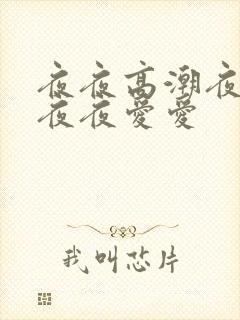 夜夜高潮夜
夜夜爱爱
我叫芯片